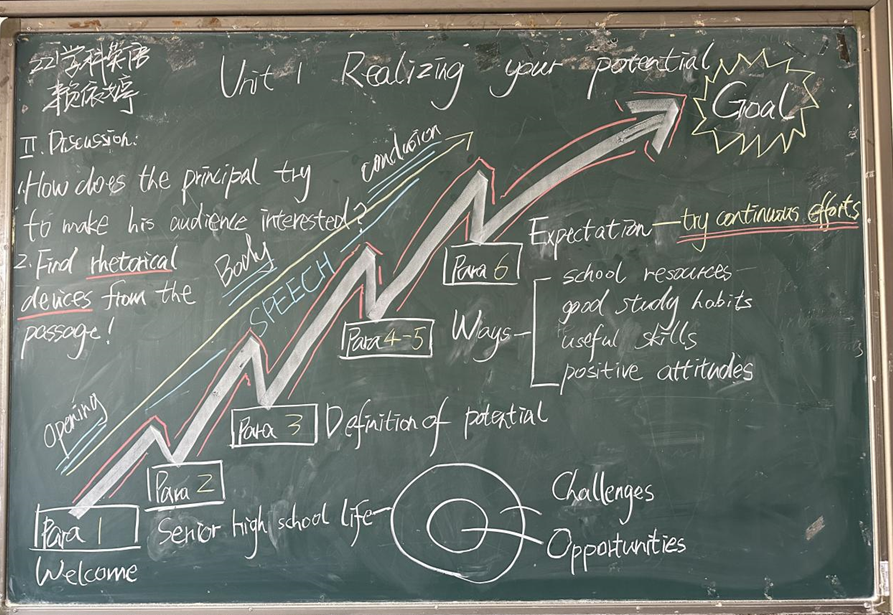 22学科英语
赖依婷
Unit 1 Realizing your potential
Goal
II. Discussion:
1. How does the principal try
to make his audience interested?
2. Find rhetorical
devices from the
passage!
Opening
Body
conclusion
SPEECH
Para 6
Expectation — try continuous efforts
Para 4-5
Ways
school resources
good study habits
useful skills
positive attitudes
Para 3 Definition of potential
Para 2
Senior high school life
Challenges
Opportunities
Para 1
Welcome